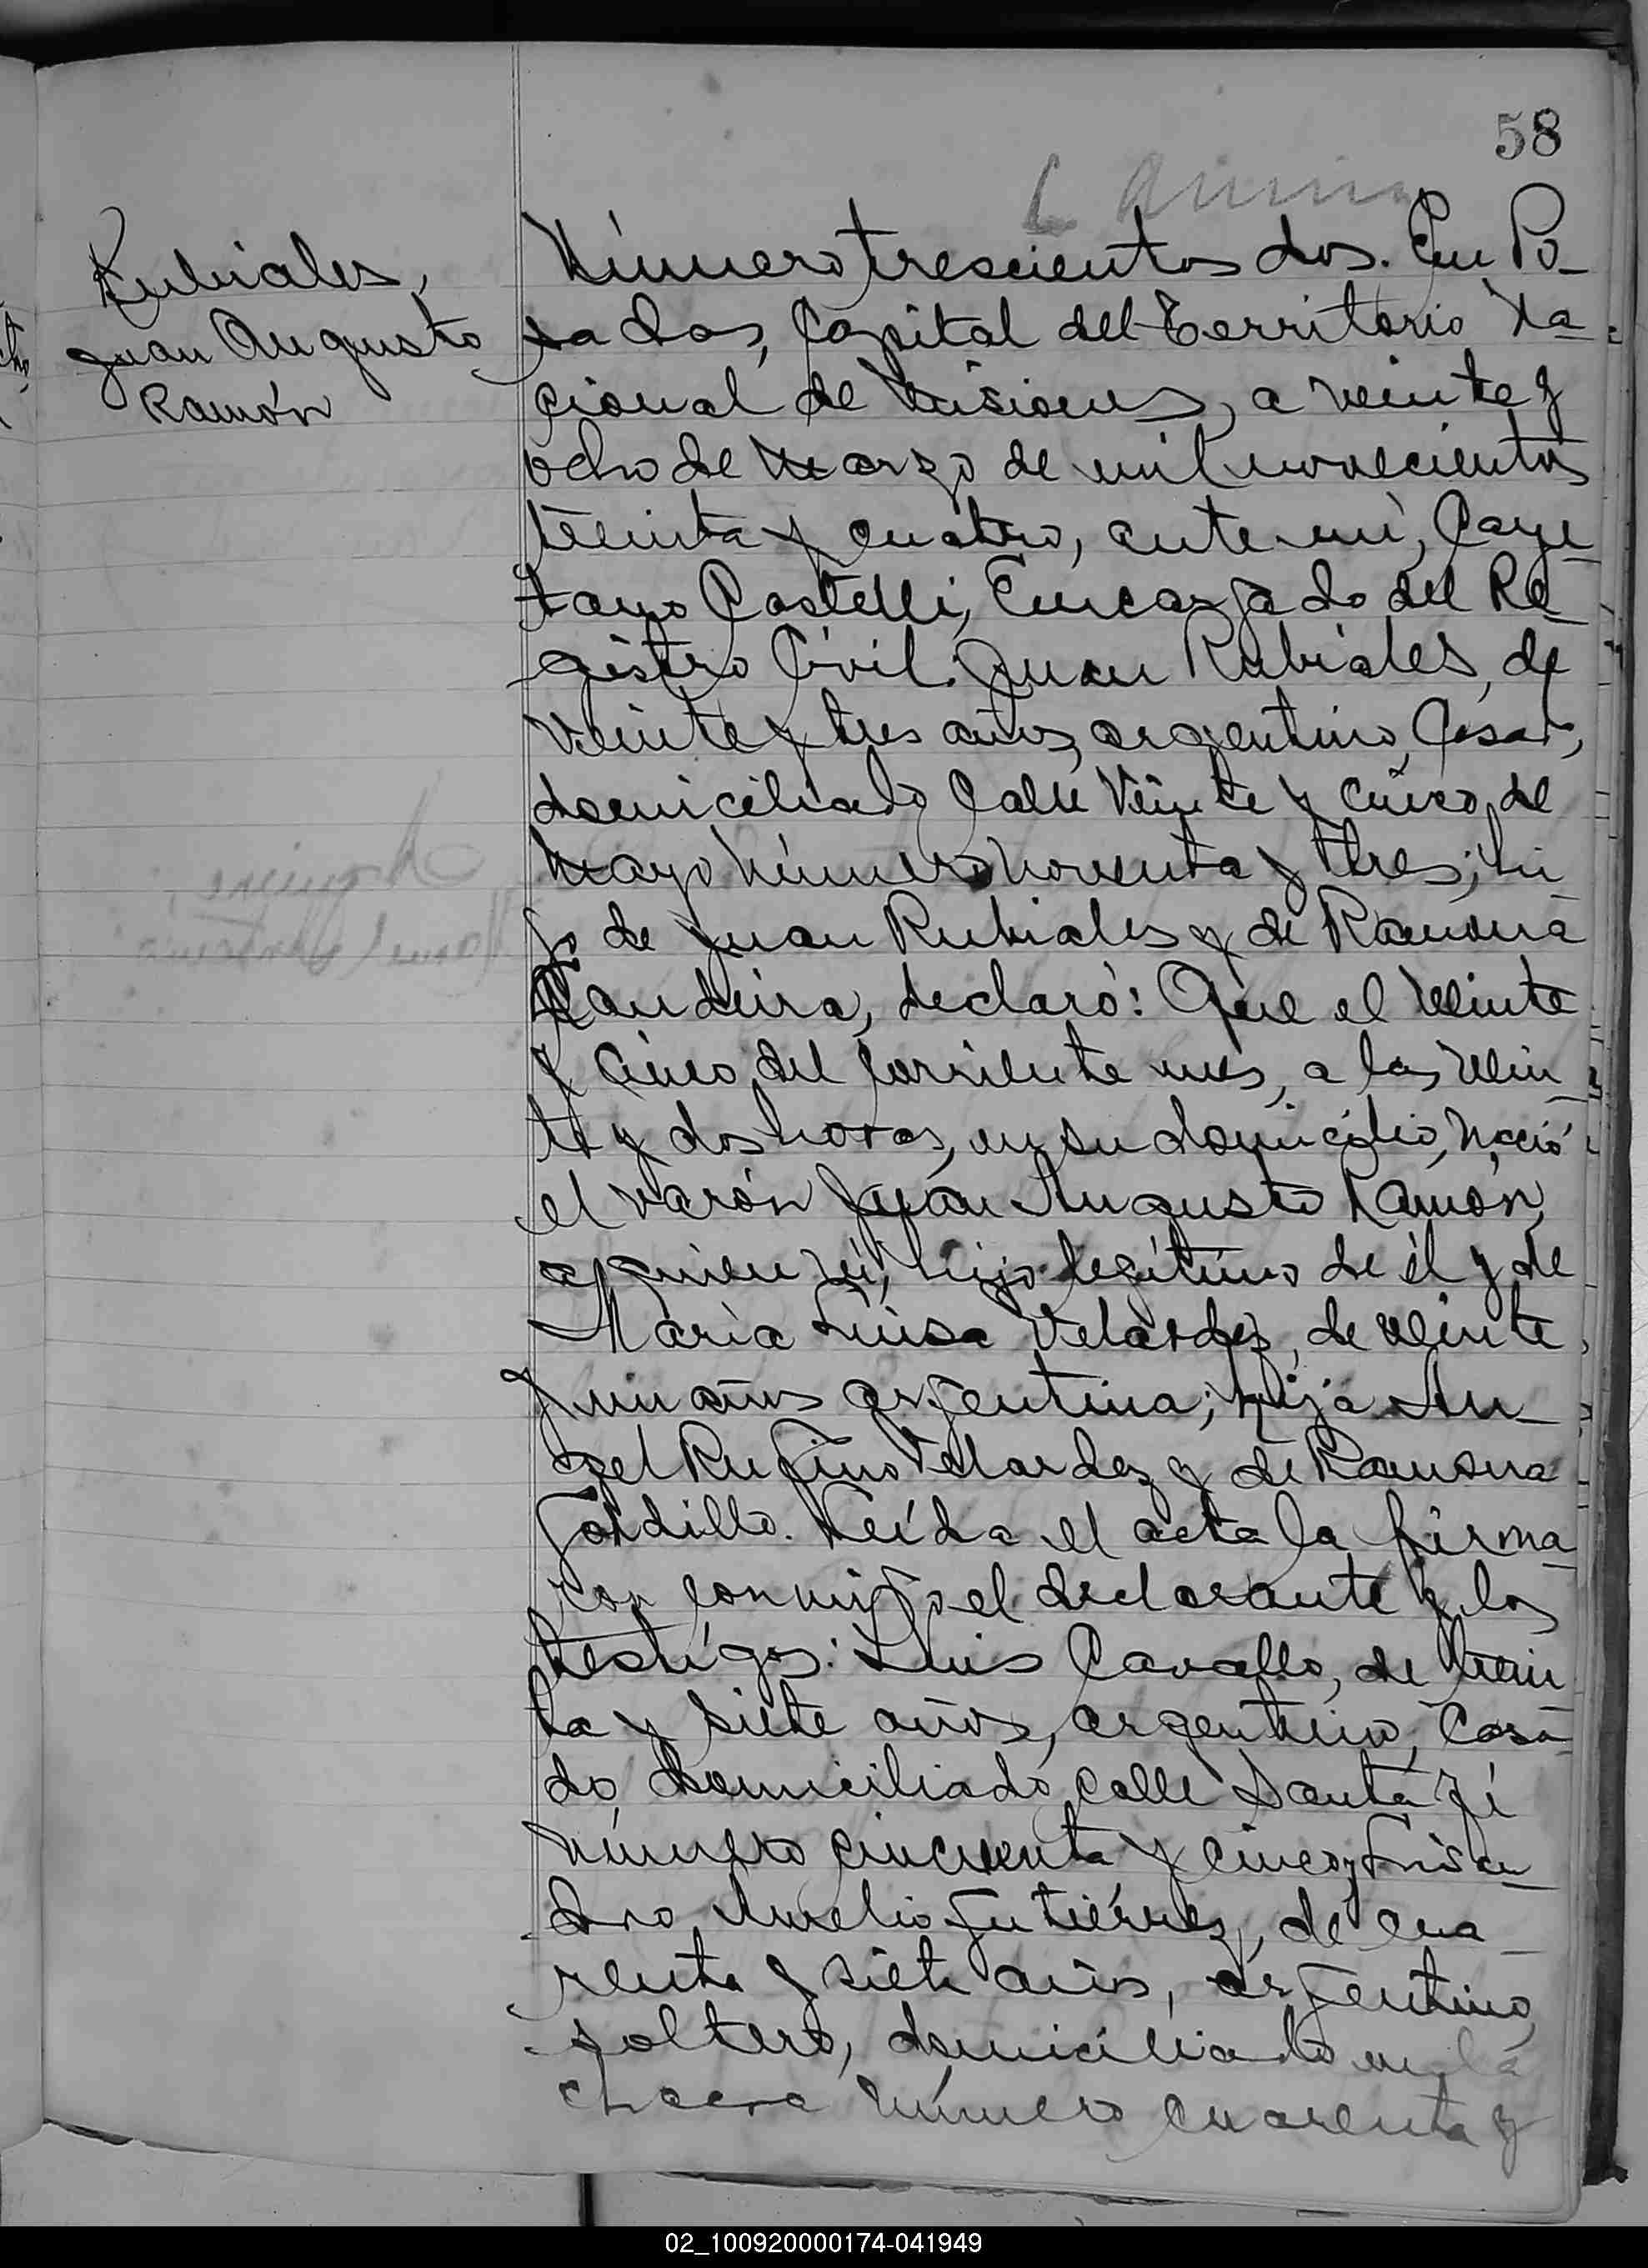 58
Rubiales,
Juan Augusto
Ramón
Número trescientos dos. En Po-
sadas, Capital del Territorio Na-
cional de Misiones, a veinte y
ocho de Marzo de mil novecientos
treinta y cuatro, ante mí, Caye-
tano Castelli, Encargado del Re-
gistro Civil: Juan Rubiales, de
veinte y tres años, argentino, Casado,
domiciliado Calle Veinte y cinco de
Mayo Número Noventa y tres; hi-
jo de Juan Rubiales y de Ramona
Bandeira, declaró: Que el Veinte
y cinco del corriente mes, a las Vein-
te y dos horas, en su domicilio, Nació
el varón Juan Augusto Ramón,
a quien ví, hijo legítimo de él y de
María Luisa Velardez, de veinte
y un años argentina; hija An-
gel Rufino Velardez y de Ramona
Gordillo. Leída el acta la firma-
ron conmigo el declarante y los
testigos: Luis Cavallo, de trein
ta y siete años, argentino, Casa-
do, domiciliado calle Santa Fé
número cincuenta y cinco y Lisan-
dro Aurelio Gutiérrez, de cua-
renta y siete años, argentino,
soltero, domiciliado en la
chacra Número Cuarenta y
02_100920000174-041949